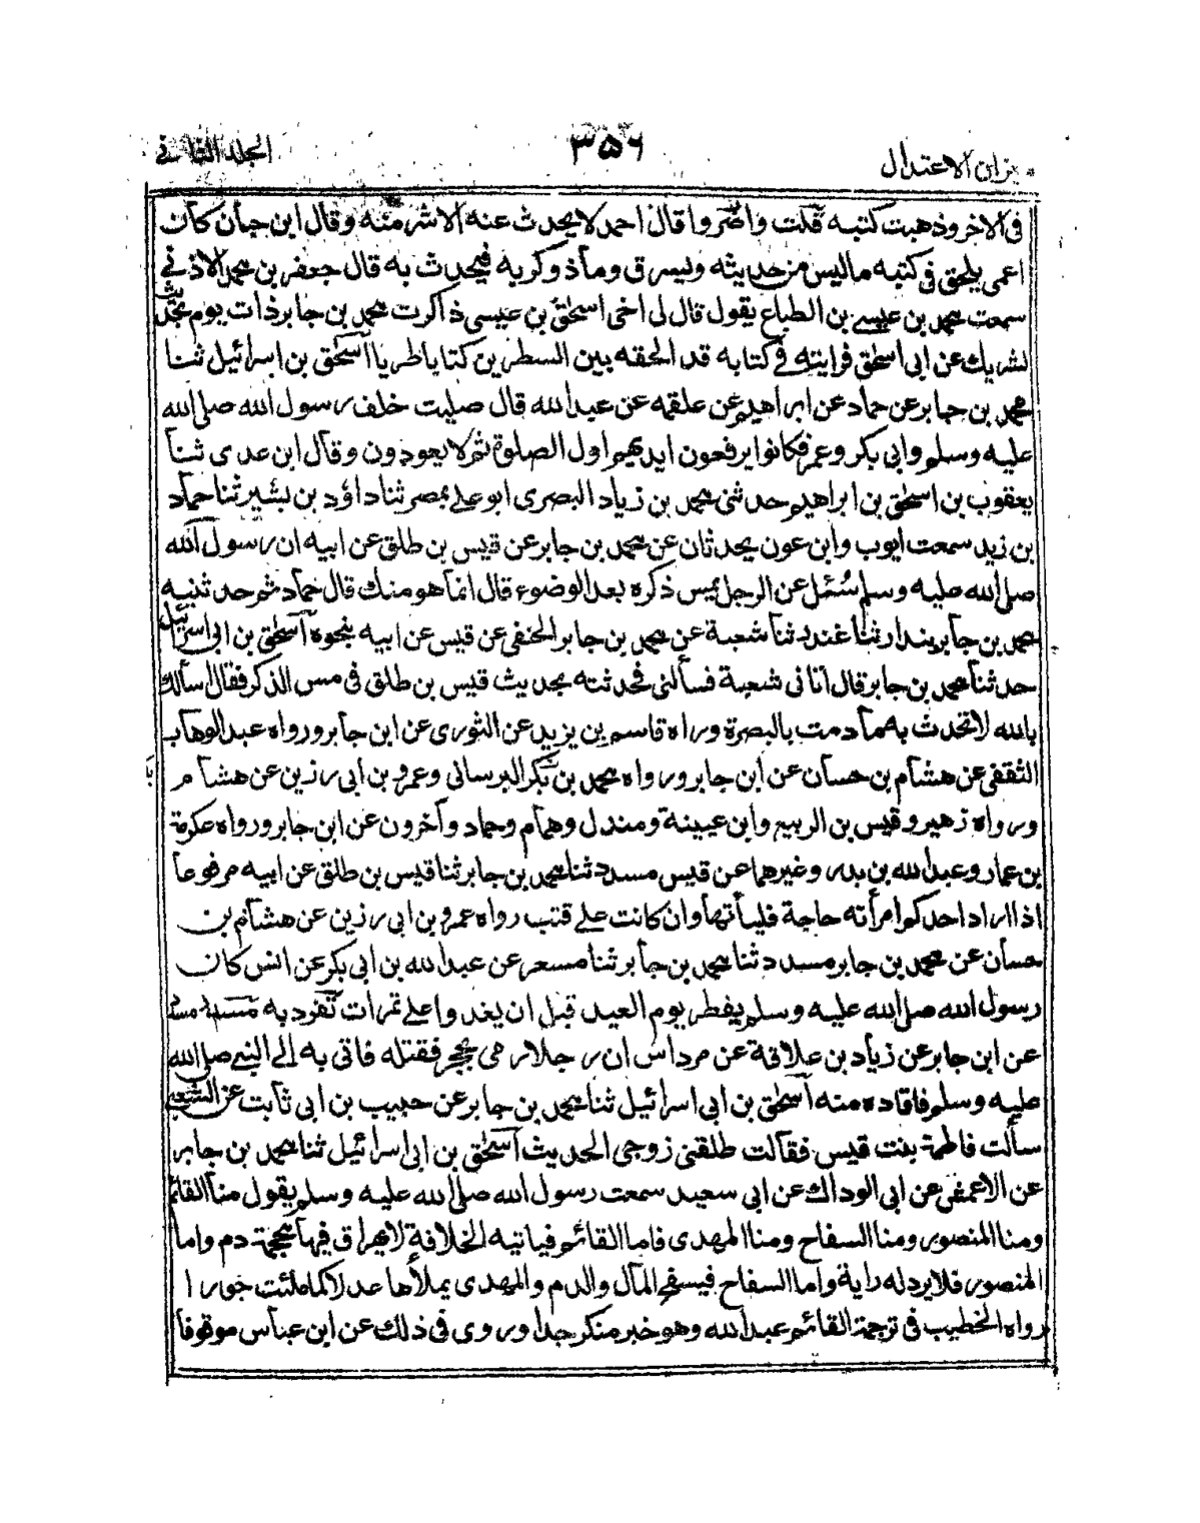 ميزان الاعتدال ٣٥٦ الجلد الثاني
فى الاخر وذهبت كتبه قلت واضر وا قال احمد لا يحدث عنه الا شر منه وقال ابن حبان كان
اعمى يلحق فى كتبه ما ليس من حديثه ويسرق وما ذوكر به فيحدث به قال جعفر بن محمد الاذنى
سمعت محمد بن عيسے بن الطباع يقول قال لى اخى اسحٰق بن عيسى ذاكرت محمد بن جابر ذات يوم بحديث
لشريك عن ابى اسحٰق فرايته فى كتابه قد الحقه بين السطرين كتابا طريا اسحٰق بن اسرائيل ثنا
محمد بن جابر عن حماد عن ابراهيم عن علقمه عن عبد الله قال صليت خلف رسول الله صلى الله
عليه وسلم وابى بكر وعمر فكانوا يرفعون ايديهم اول الصلوة ثم لا يعودون وقال ابن عدى ثنا
يعقوب بن اسحٰق بن ابراهيم حدثنى محمد بن زياد البصرى ابو على بمصر ثنا داؤد بن بشير ثنا حماد
بن زيد سمعت ايوب وابن عون يحدثان عن محمد بن جابر عن قيس بن طلق عن ابيه ان رسول الله
صلى الله عليه وسلم سُئل عن الرجل يمس ذكره بعد الوضوء قال انما هو منك قال حماد ثم حدثنيه
محمد بن جابر بندار ثنا غندر ثنا شعبة عن محمد بن جابر الحنفى عن قيس عن ابيه بنحوه اسحٰق بن ابى اسرائيل
حدثنا محمد بن جابر قال اتانى شعبة فسألنى فحدثته بحديث قيس بن طلق فى مس الذكر فقال اسألك
بالله لا تحدث به ما دمت بالبصرة ورواه قاسم بن يزيد عن الثورى عن ابن جابر ورواه عبد الوهاب
الثقفى عن هشام بن حسان عن ابن جابر ورواه محمد بن بكر البرسانى وعمرو بن ابى رزين عن هشام
ورواه زهير وقيس بن الربيع وابن عيينة ومندل وهمام وحماد وآخرون عن ابن جابر ورواه عكرمة
بن عمار وعبد الله بن بدر وغيرهما عن قيس مسدد ثنا محمد بن جابر ثنا قيس بن طلق عن ابيه مرفوعا
اذا اراد احدكم امرأته حاجة فليأتها وان كانت على قتب رواه عمرو بن ابى رزين عن هشام بن
حسان عن محمد بن جابر مسدد ثنا محمد بن جابر ثنا مسعر عن عبد الله بن ابى بكر عن انس كان
رسول الله صلى الله عليه وسلم يفطر يوم العيد قبل ان يغدو على تمرات تفرد به مسدد
عن ابن جابر عن زياد بن علاقة عن مرداس ان رجلا رمى بحجر فقتله فاتى به الى النبى صلى الله
عليه وسلم فاقاده منه اسحٰق بن ابى اسرائيل ثنا محمد بن جابر عن حبيب بن ابى ثابت عن الشعبى
سألت فاطمة بنت قيس فقالت طلقنى زوجى الحديث اسحٰق بن ابى اسرائيل ثنا محمد بن جابر
عن الاعمش عن ابى الوداك عن ابى سعيد سمعت رسول الله صلى الله عليه وسلم يقول منا القائم
ومنا المنصور ومنا السفاح ومنا المهدى فاما القائم فياتيه الخلافة لا يهراق فيها محجمة دم واما
المنصور فلا يرد له راية واما السفاح فيسفح المال والدم والمهدى يملأها عدلا كما ملئت جورا
رواه الخطيب فى ترجمة القائم عبد الله وهو خبر منكر جدا وروى فى ذلك عن ابن عباس موقوفا